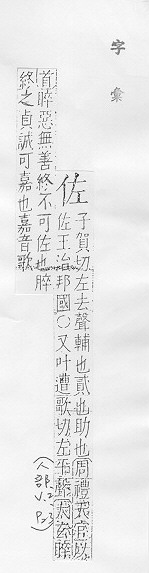 字彙
佐
子賀切左去聲輔也貳也助也周禮天官以
佐王治邦國○又叶遭歌切左平聲
首睟惡無善終不可佐也睟
終之貞誠可嘉也嘉音歌
(人部